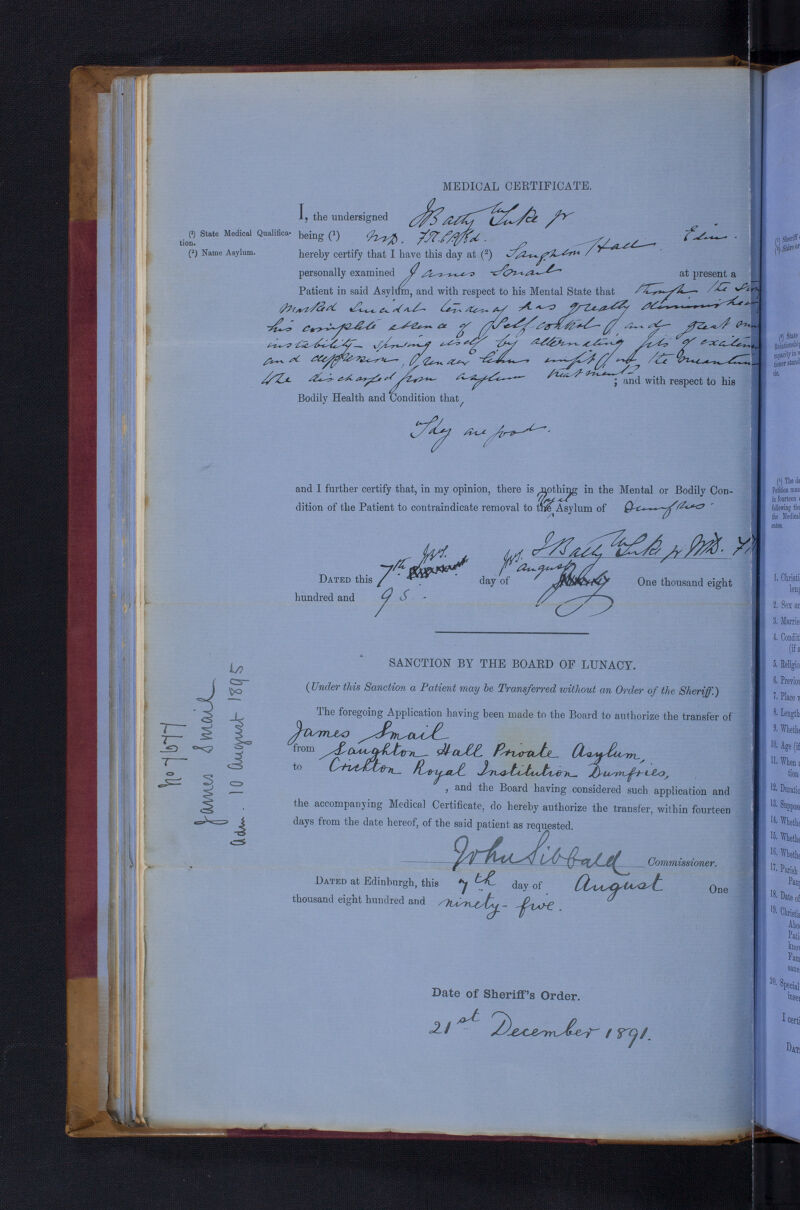 MEDICAL CERTIFICATE.
I, the undersigned J Batty Tuke jr
(¹) State Medical Qualifica-
tion.
being (¹) M.D. F.R.C.P.Ed.
(²) Name Asylum.
hereby certify that I have this day at (²) Saughton Hall Edin.
personally examined James Smail at present a
Patient in said Asylum, and with respect to his Mental State that though the
marked Suicidal tendency has greatly diminished
his complete absence of Self control, and great
instability - showing itself by alternating fits of
and depression, render him unfit, in the meantime
to be discharged from asylum treatment ; and with respect to his
Bodily Health and Condition that,
They are good.
and I further certify that, in my opinion, there is nothing in the Mental or Bodily Con-
Royal
dition of the Patient to contraindicate removal to the Asylum of Dumfries.
J Batty Tuke jr M.D.
DATED this 7th day of August One thousand eight
hundred and 95.
SANCTION BY THE BOARD OF LUNACY.
(Under this Sanction a Patient may be Transferred without an Order of the Sheriff.)
The foregoing Application having been made to the Board to authorize the transfer of
James Smail
from Saughton Hall Private Asylum,
to Crichton Royal Institution Dumfries,
, and the Board having considered such application and
the accompanying Medical Certificate, do hereby authorize the transfer, within fourteen
days from the date hereof, of the said patient as requested.
John Sibbald Commissioner.
DATED at Edinburgh, this 7th day of August One
thousand eight hundred and ninety-five.
Date of Sheriff's Order.
21st December 1891.
James Smail
Adm. 10 August 1895